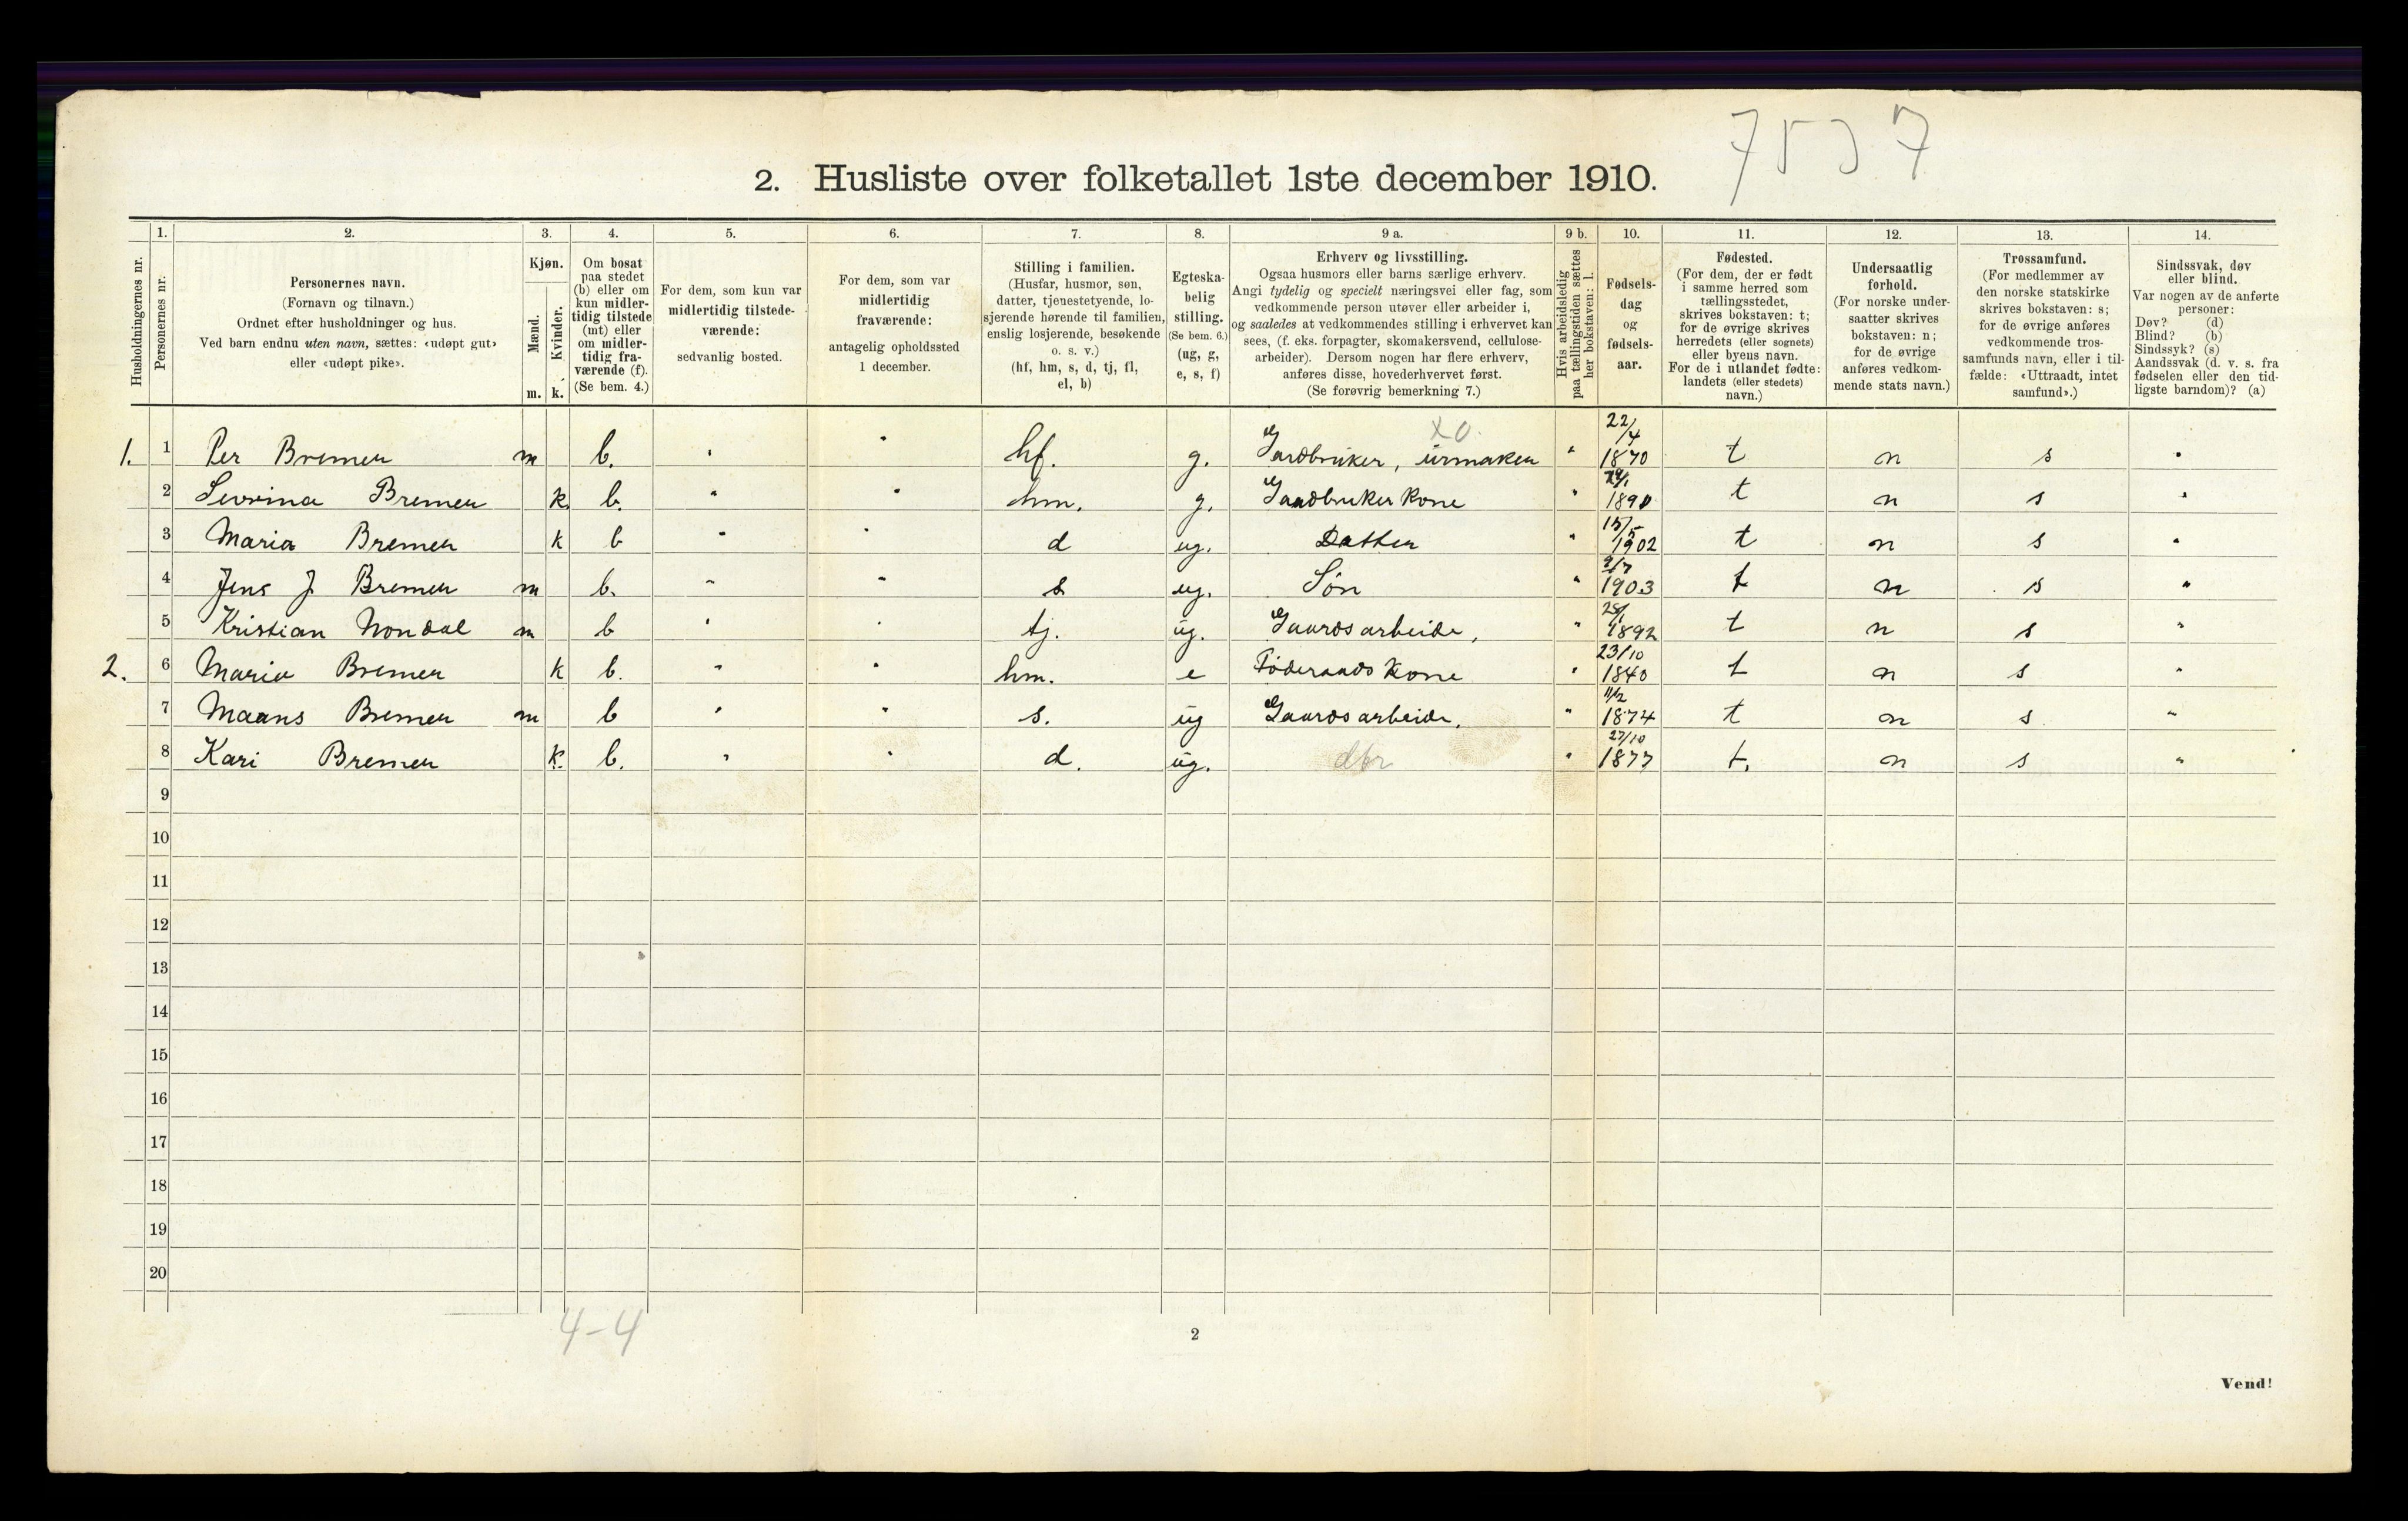 7537
2. Husliste over folketallet 1ste december 1910.
Husholdningernes nr.
1.
Personernes nr.
2.
Personernes navn.
(Fornavn og tilnavn.)
Ordnet efter husholdninger og hus.
Ved barn endnu uten navn, sættes: «udøpt gut»
eller «udøpt pike».
3.
Kjøn.
Mænd.
Kvinder.
m. k.
4.
Om bosat
paa stedet
(b) eller om
kun midler-
tidig tilstede
(mt) eller
om midler-
tidig fra-
værende (f).
(Se bem. 4.)
5.
For dem, som kun var
midlertidig tilstede-
værende:
sedvanlig bosted.
6.
For dem, som var
midlertidig
fraværende:
antagelig opholdssted
1 december.
7.
Stilling i familien.
(Husfar, husmor, søn,
datter, tjenestetyende, lo-
sjerende hørende til familien,
enslig losjerende, besøkende
o. s. v.)
(hf, hm, s, d, tj, fl,
el, b)
8.
Egteska-
belig
stilling.
(Se bem. 6.)
(ug, g,
e, s, f)
9 a.
Erhverv og livsstilling.
Ogsaa husmors eller barns særlige erhverv.
Angi tydelig og specielt næringsvei eller fag, som
vedkommende person utøver eller arbeider i,
og saaledes at vedkommendes stilling i erhvervet kan
sees, (f. eks. forpagter, skomakersvend, cellulose-
arbeider). Dersom nogen har flere erhverv,
anføres disse, hovederhvervet først.
(Se forøvrig bemerkning 7.)
9 b.
Hvis arbeidsledig
paa tællingstiden sættes
her bokstaven: l.
10.
Fødsels-
dag
og
fødsels-
aar.
11.
Fødested.
(For dem, der er født
i samme herred som
tællingsstedet,
skrives bokstaven: t;
for de øvrige skrives
herredets (eller sognets)
eller byens navn.
For de i utlandet fødte:
landets (eller stedets)
navn.)
12.
Undersaatlig
forhold.
(For norske under-
saatter skrives
bokstaven: n;
for de øvrige
anføres vedkom-
mende stats navn.)
13.
Trossamfund.
(For medlemmer av
den norske statskirke
skrives bokstaven: s;
for de øvrige anføres
vedkommende tros-
samfunds navn, eller i til-
fælde: «Uttraadt, intet
samfund».)
14.
Sindssvak, døv
eller blind.
Var nogen av de anførte
personer:
Døv? (d)
Blind? (b)
Sindssyk? (s)
Aandssvak (d. v. s. fra
fødselen eller den tid-
ligste barndom)? (a)
x0.
1. 1 Per Bremer m b. " " hf. g. Gardbruker, urmaker " 22/4 1870 t n s "
2 Sevrina Bremer k. b. " " hm. g. Gaardbruker kone " 1890 t n s "
3 Maria Bremer k b " " d ug. Datter " 15/5 1902 t n s "
4 Jens J Bremer m b. " " s ug. Søn " 9/7 1903 t n s "
5 Kristian Nondal m b " " tj. ug. Gaardsarbeide, " 1892 t n s "
2. 6 Maria Bremer k b. " " hm. e Føderaads kone " 23/10 1840 t n s "
7 Maans Bremer m b " " s. ug Gaardsarbeide. " 11/2 1874 t n s "
8 Kari Bremer k. b. " " d. ug. dtr " 27/10 1877 t. n s "
9
10
11
12
13
14
15
16
17
18
19
20
4-4
2
Vend!